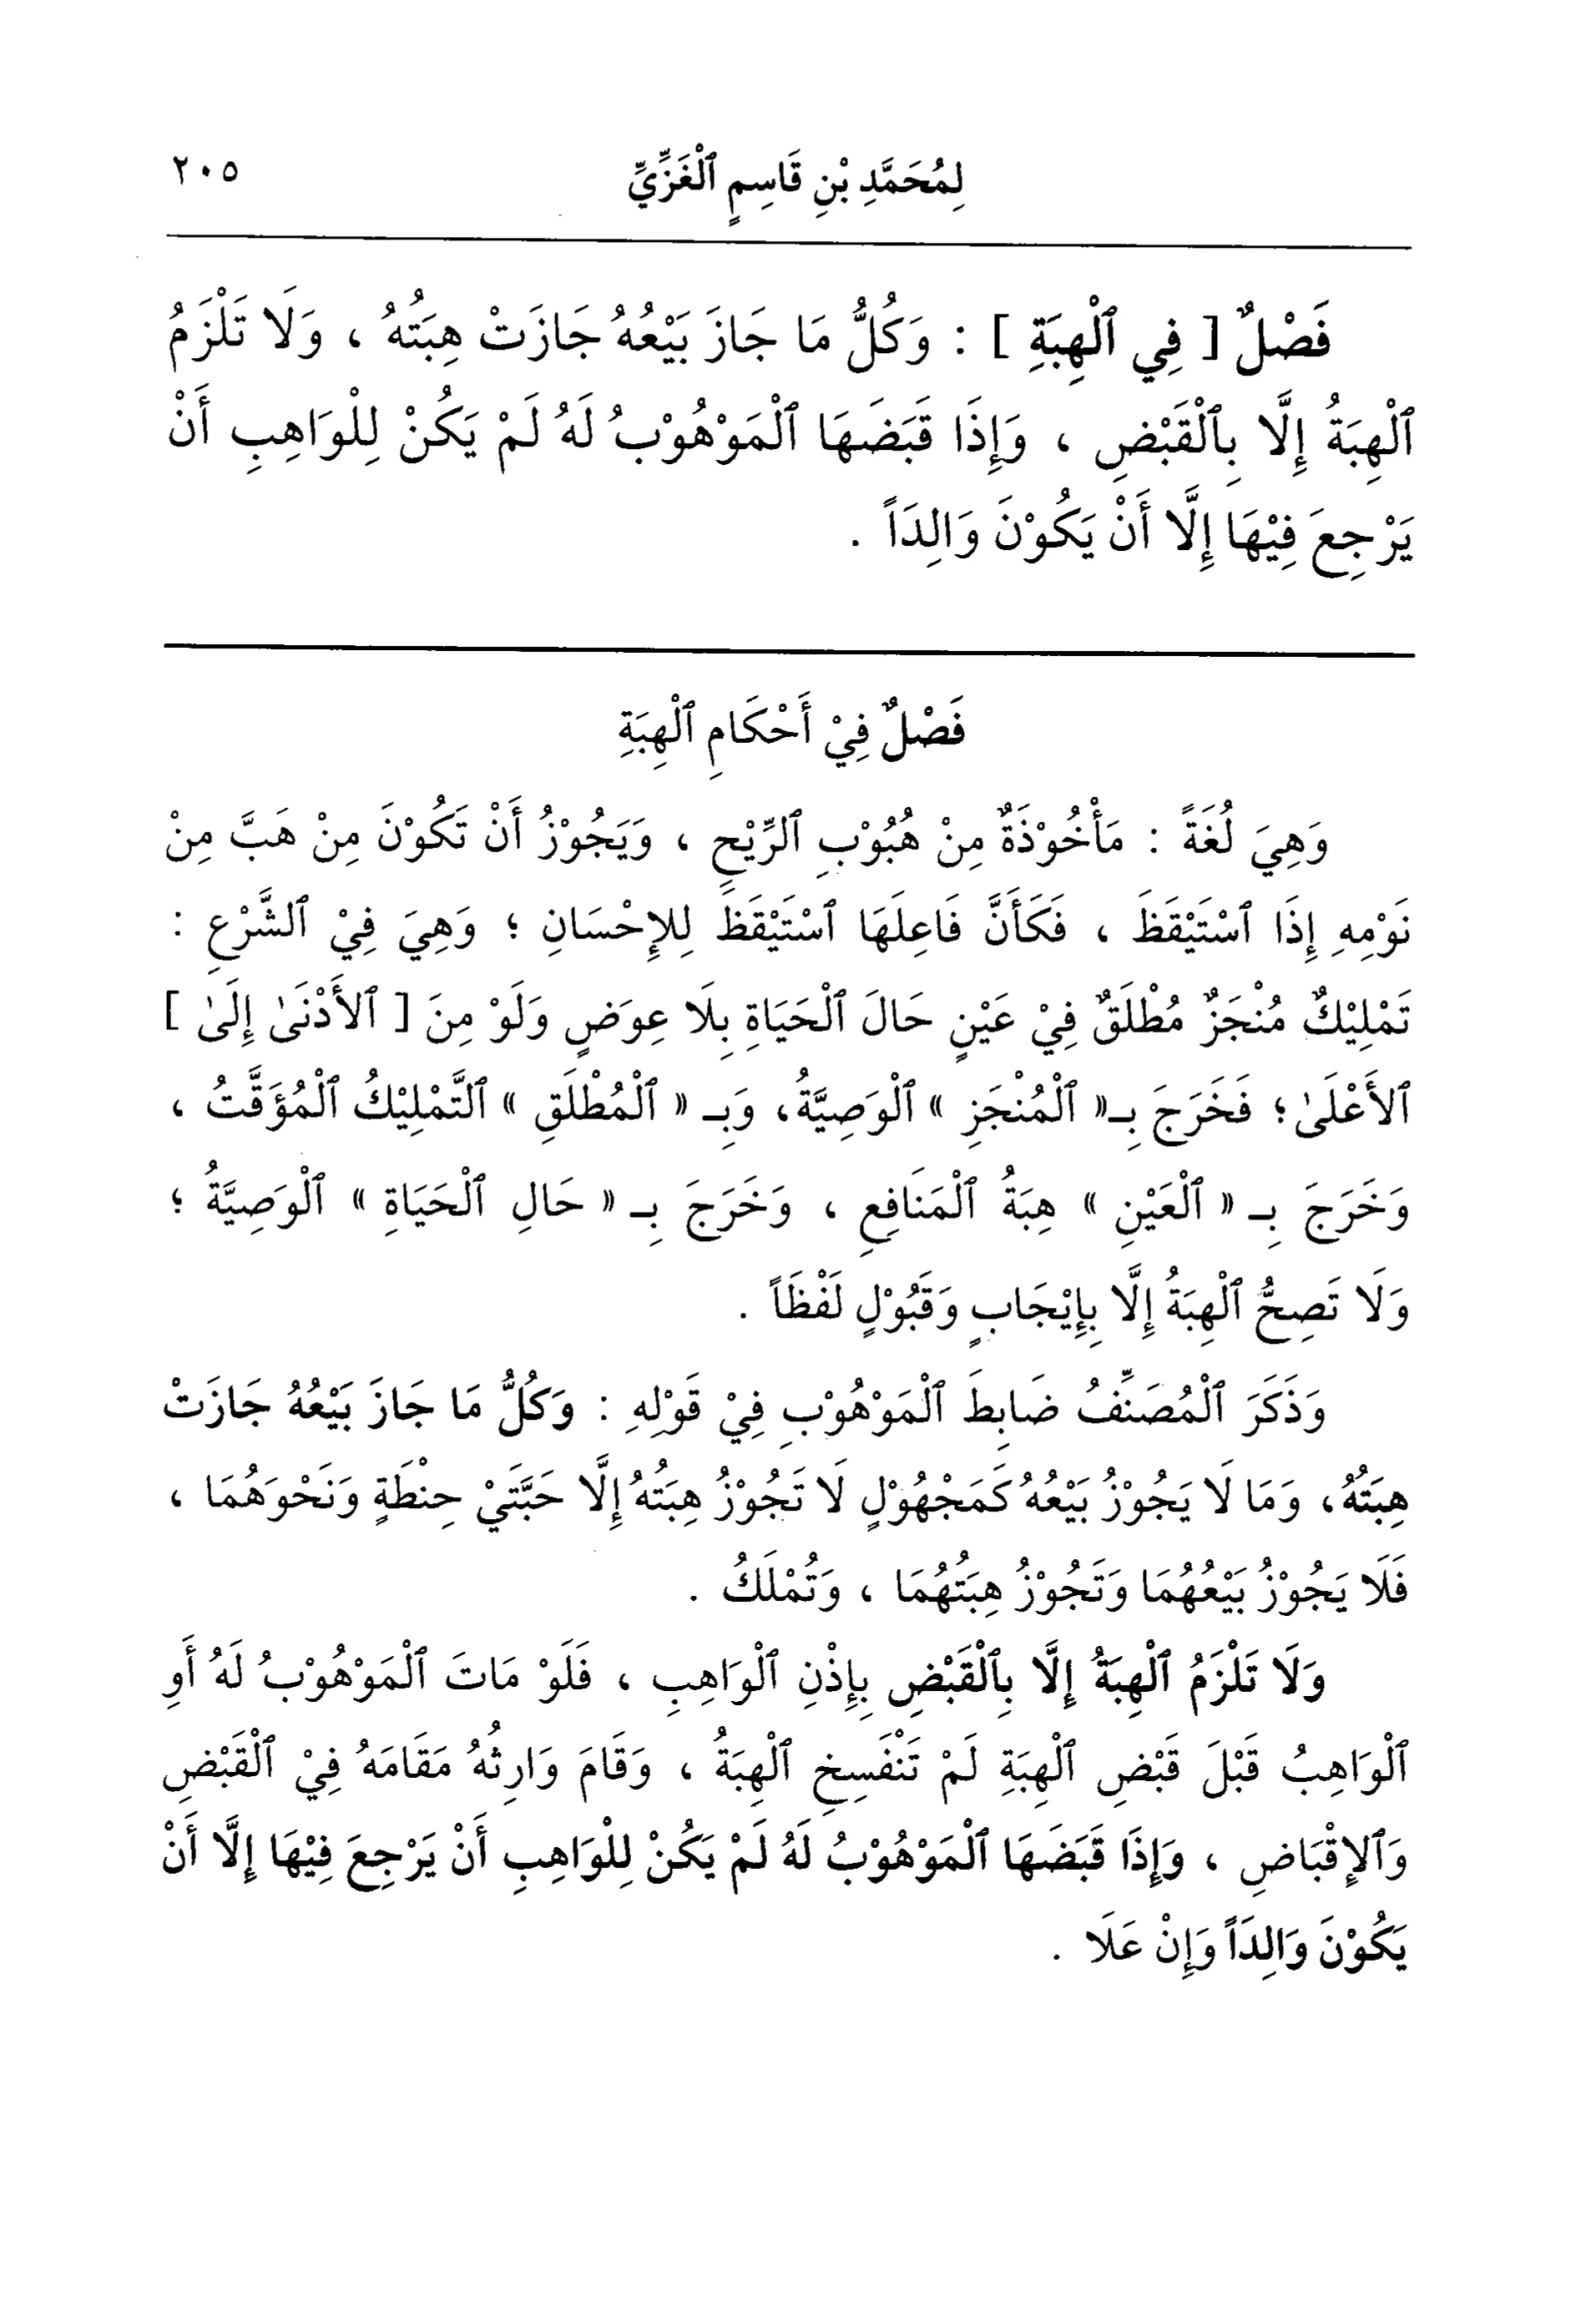 لِمُحَمَّدِ بْنِ قَاسِمٍ ٱلْغَزِّيِّ ٢٠٥
فَصْلٌ [ فِي ٱلْهِبَةِ ] : وَكُلُّ مَا جَازَ بَيْعُهُ جَازَتْ هِبَتُهُ ، وَلَا تَلْزَمُ
ٱلْهِبَةُ إِلَّا بِٱلْقَبْضِ ، وَإِذَا قَبَضَهَا ٱلْمَوْهُوْبُ لَهُ لَمْ يَكُنْ لِلْوَاهِبِ أَنْ
يَرْجِعَ فِيْهَا إِلَّا أَنْ يَكُوْنَ وَالِدَاً .
فَصْلٌ فِيْ أَحْكَامِ ٱلْهِبَةِ
وَهِيَ لُغَةً : مَأْخُوْذَةٌ مِنْ هُبُوْبِ ٱلرِّيْحِ ، وَيَجُوْزُ أَنْ تَكُوْنَ مِنْ هَبَّ مِنْ
نَوْمِهِ إِذَا ٱسْتَيْقَظَ ، فَكَأَنَّ فَاعِلَهَا ٱسْتَيْقَظَ لِلإِحْسَانِ ؛ وَهِيَ فِيْ ٱلشَّرْعِ :
تَمْلِيْكٌ مُنْجَزٌ مُطْلَقٌ فِيْ عَيْنٍ حَالَ ٱلْحَيَاةِ بِلَا عِوَضٍ وَلَوْ مِنَ [ ٱلأَدْنَىٰ إِلَىٰ ]
ٱلأَعْلَىٰ ؛ فَخَرَجَ بِـ« ٱلْمُنْجَزِ » ٱلْوَصِيَّةُ ، وَبِـ « ٱلْمُطْلَقِ » ٱلتَّمْلِيْكُ ٱلْمُؤَقَّتُ ،
وَخَرَجَ بِـ « ٱلْعَيْنِ » هِبَةُ ٱلْمَنَافِعِ ، وَخَرَجَ بِـ « حَالِ ٱلْحَيَاةِ » ٱلْوَصِيَّةُ ؛
وَلَا تَصِحُّ ٱلْهِبَةُ إِلَّا بِإِيْجَابٍ وَقَبُوْلٍ لَفْظَاً .
وَذَكَرَ ٱلْمُصَنِّفُ ضَابِطَ ٱلْمَوْهُوْبِ فِيْ قَوْلِهِ : وَكُلُّ مَا جَازَ بَيْعُهُ جَازَتْ
هِبَتُهُ ، وَمَا لَا يَجُوْزُ بَيْعُهُ كَمَجْهُوْلٍ لَا تَجُوْزُ هِبَتُهُ إِلَّا حَبَّتَيْ حِنْطَةٍ وَنَحْوَهُمَا ،
فَلَا يَجُوْزُ بَيْعُهُمَا وَتَجُوْزُ هِبَتُهُمَا ، وَتُمْلَكُ .
وَلَا تَلْزَمُ ٱلْهِبَةُ إِلَّا بِٱلْقَبْضِ بِإِذْنِ ٱلْوَاهِبِ ، فَلَوْ مَاتَ ٱلْمَوْهُوْبُ لَهُ أَوِ
ٱلْوَاهِبُ قَبْلَ قَبْضِ ٱلْهِبَةِ لَمْ تَنْفَسِخِ ٱلْهِبَةُ ، وَقَامَ وَارِثُهُ مَقَامَهُ فِيْ ٱلْقَبْضِ
وَٱلإِقْبَاضِ ، وَإِذَا قَبَضَهَا ٱلْمَوْهُوْبُ لَهُ لَمْ يَكُنْ لِلْوَاهِبِ أَنْ يَرْجِعَ فِيْهَا إِلَّا أَنْ
يَكُوْنَ وَالِدَاً وَإِنْ عَلَا .